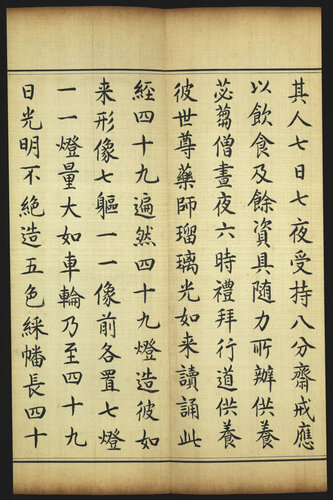 其人七日七夜受持八分齋戒應
以飲食及餘資具随力所辦供養
苾蒭僧晝夜六時禮拜行道供養
彼世尊藥師瑠璃光如来讀誦此
經四十九遍然四十九燈造彼如
来形像七軀一一像前各置七燈
一一燈量大如車輪乃至四十九
日光明不絶造五色綵幡長四十